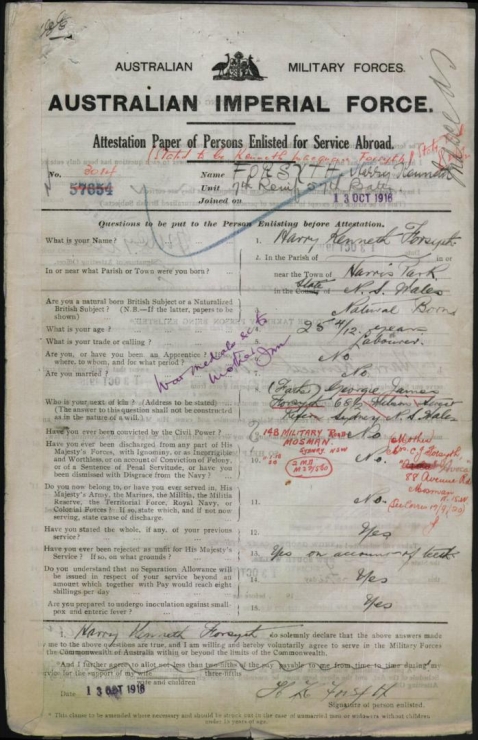 AUSTRALIAN MILITARY FORCES.
AUSTRALIAN IMPERIAL FORCE.
Attestation Paper of Persons Enlisted for Service Abroad.
(Stated to be Kenneth Forsyth)
No. 57654 Name FORSYTH Harry Kenneth
Unit 7th Rein 57th Battn
Joined on 13 OCT 1916
Questions to be put to the Person Enlisting before Attestation.
What is your Name? 1. Harry Kenneth Forsyth
In or near what Parish or Town were you born? 2. In the Parish of in or
near the Town of Harris Park
in the State of N.S. Wales
Are you a natural born British Subject or a Naturalized
British Subject? (N.B.—If the latter, papers to be
shown) Natural Born
What is your age? 25 4/12 years
What is your trade or calling? Labourer
Are you, or have you been, an Apprentice
where, to whom, and for what period? No
Are you married? No.
War medals
Who is your next of kin? (Address to be stated)
(The answer to this question shall not be construed
as in the nature of a will.)
(Father) George James
Forsyth
Sydney N.S. Wales
Have you ever been convicted by the Civil Power? No
14B MILITARY ROAD
MOSMAN
SYDNEY NSW
Mother
Mrs C J Forsyth
88 Avenue Rd
Mosman
Have you ever been discharged from any part of His
Majesty's Forces, with Ignominy, or as Incorrigible
and Worthless, or on account of Conviction of Felony,
or of a Sentence of Penal Servitude, or have you
been dismissed with Disgrace from the Navy? 10. No
Do you now belong to, or have you ever served in, His
Majesty's Army, the Marines, the Militia, the Militia
Reserve, the Territorial Force, Royal Navy, or
Colonial Forces? If so, state which, and if not now
serving, state cause of discharge. 11. No.
Have you stated the whole, if any, of your previous
service? 12. Yes
Have you ever been rejected as unfit for His Majesty's
Service? If so, on what grounds? 13. Yes on account of
Do you understand that no Separation Allowance will
be issued in respect of your service beyond an
amount which together with Pay would reach eight
shillings per day 14. Yes
Are you prepared to undergo inoculation against small
pox and enteric fever? 15. Yes
I, Harry Kenneth Forsyth do solemnly declare that the above answers made
by me to the above questions are true, and I am willing and hereby voluntarily agree to serve in the Military Forces
of the Commonwealth of Australia within or beyond the limits of the Commonwealth.
*And I further agree to allot not less than two-fifths of the pay payable to me from time to time during my
service for the support of my wife three-fifths
wife and children
Date 13 OCT 1916
H K Forsyth
Signature of person enlisted.
*This clause to be amended where necessary and should be struck out in the case of unmarried men or widowers without children
under 18 years of age.